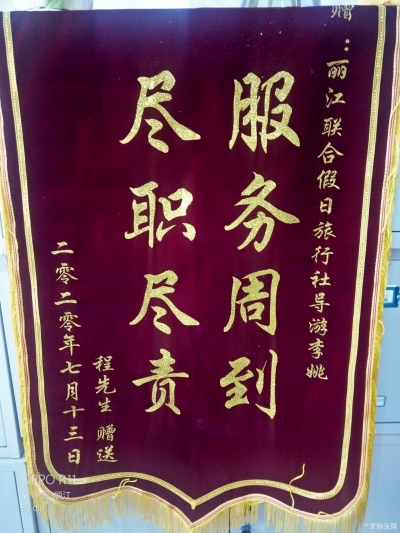 赠：丽江联合假日旅行社导游李姚
服务周到
尽职尽责
程先生 赠送
二零二零年七月十三日
OPPO R11